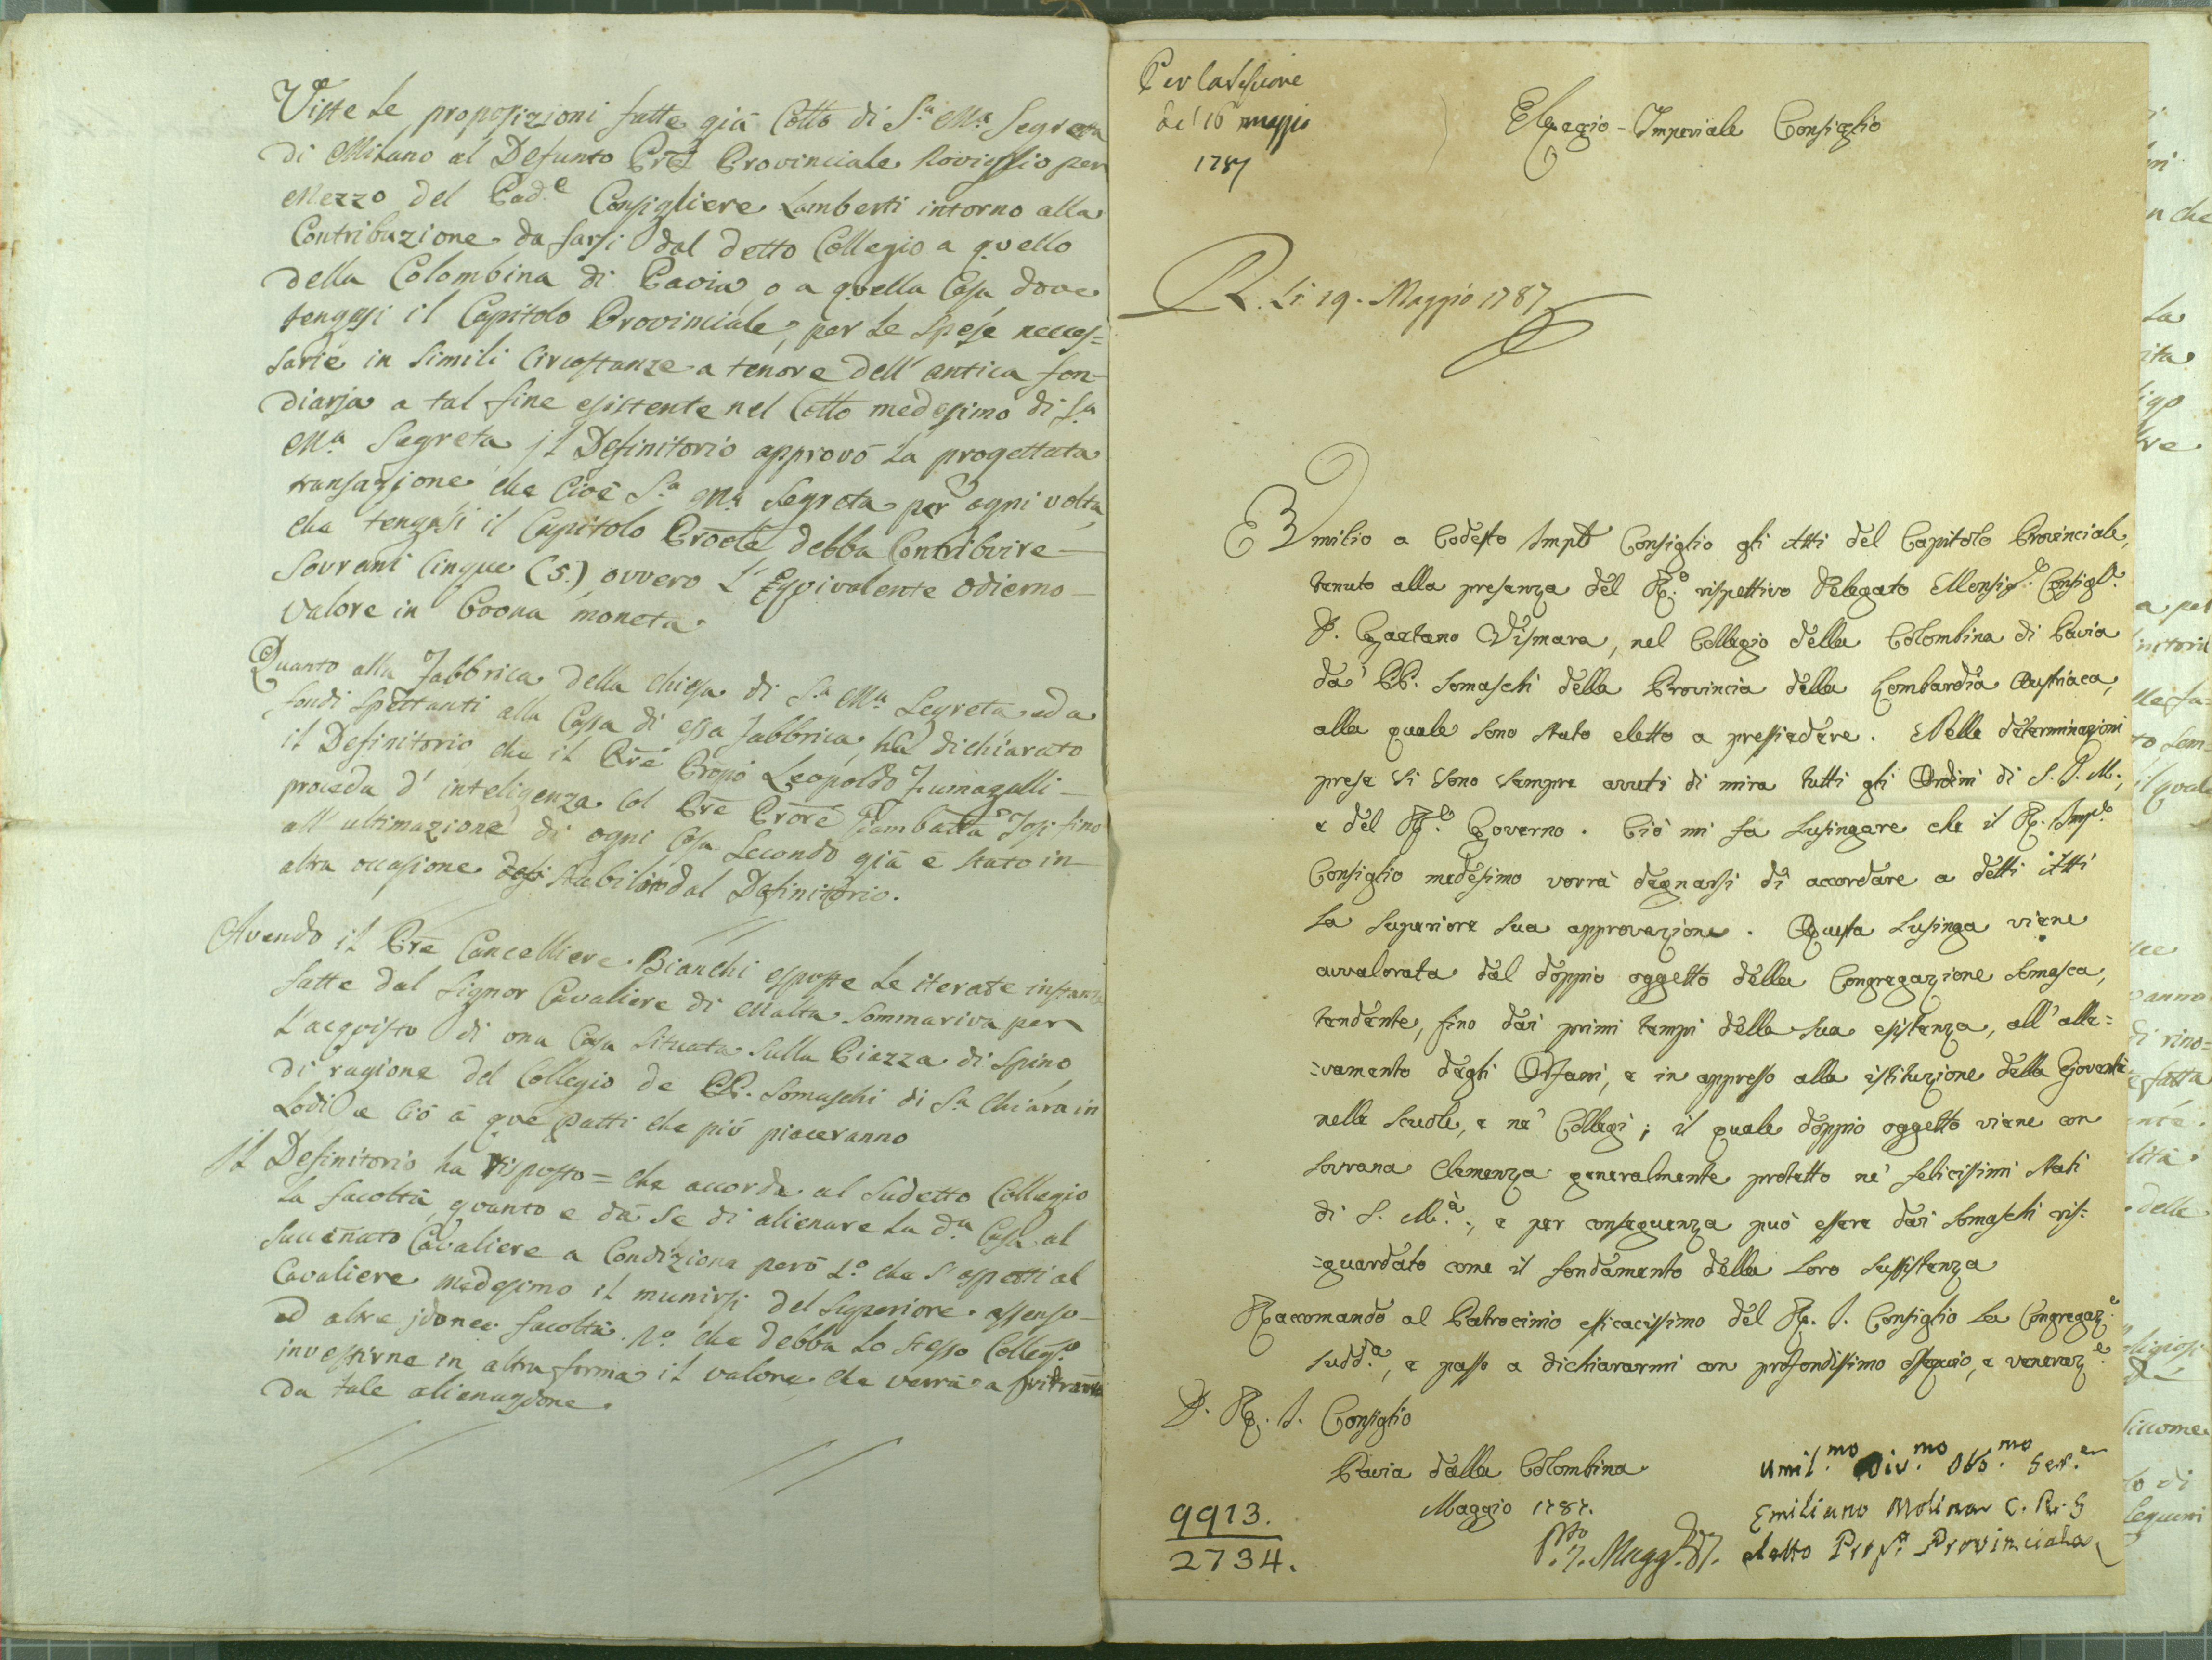 Viste le proposizioni fatte già Collo di S.a M.a Segreta
di Milano al Defunto Prē Provinciale Rovisglio per
mezzo del Pad.e Consigliere Lamberti intorno alla
Contribuzione da farsi dal detto Collegio a quello
della Colombina di Pavia, o a quella Casa dove
tengasi il Capitolo Provinciale, per le spese neces=
sarie in simili Circostanze a tenore dell' antica fon-
diaria a tal fine esistente nel Collo medesimo di S.a
M.a Segreta, il Definitorio approvò la progettata
transazione, che Cioè S.a M.a Segreta per ogni volta,
che tengasi il Capitolo Proole debba Contribuire
Sovrani Cinque (5.), ovvero l'Equivalente odierno
valore in buona moneta.
Quanto alla Fabbrica della Chiesa di S.a M.a Segreta ed a
fondi spettanti alla Cassa di essa fabbrica, ha dichiarato
il Definitorio, che il Prē Propo Leopoldo Fumagalli
proceda d' inteligenza Col Prē Prore Giambatta Josi fino
all' ultimazione di ogni Cosa secondo già è stato in
altra occasione stabilito dal Definitorio.
Avendo il Prē Cancelliere Bianchi esposte le iterate instanze
fatte dal Signor Cavaliere di Malta Sommariva per
l'acquisto di una Casa situata sulla Piazza di Spino
di ragione del Collegio de PP. Somaschi di S.a Chiara in
Lodi e Ciò a que patti che più piaceranno
il Definitorio ha risposto = che accorda al sudetto Collegio
la facoltà, quanto e dà se di alienare la d.a Casa al
succeñato Cavaliere a Condizione però 1.o che s' aspetti al
Cavaliere medesimo il munirsi del Superiore assenso
ed altre idonee facoltà. 2.o che debba lo stesso Colleg.o
investirne in altra forma il valore che verrà a
da tale alienazione.
Per la Sessione
de' 16 maggio
1787
Regio-Imperiale Consiglio
R. Li 19. Maggio 1787
Umilio a codesto Imple Consiglio gli Atti del Capitolo Provinciale,
tenuto alla presenza del R.o rispettivo Delegato Monsig.e Consigl.e
D. Gaetano Vismara, nel Collegio della Colombina di Pavia
da' PP. Somaschi della Provincia della Lombardia Austriaca,
alla quale sono stato eletto a pressiedere. Nelle determinazioni
prese si sono sempre avuti di mira tutti gli Ordini di S. I. M.,
e del R.o Governo. Ciò mi fa lusingare che il R. Imple
Consiglio medesimo vorrà degnarsi di accordare a detti Atti
la superiore sua approvazione. Questa lusinga viene
avvalorata dal doppio oggetto della Congregazione Somasca,
tendente, fino dai primi tempi della sua esistenza, all' alle=
=vamento degli Orfani, e in appresso alla istituzione della Gioventù
nelle scuole, e ne' Collegi; il quale doppio oggetto viene con
Sovrana Clemenza generalmente protetto ne' felicissimi Stati
di S. M.à, e per conseguenza può essere dai Somaschi ris=
=guardato come il fondamento della loro sussistenza
Racomando al Patrocinio efficacissimo del R. I. Consiglio la Congregaz.e
sudd.a, e passo a dichiararmi con profondissimo ossequio, e veneraz.e
D. R. I. Consiglio
Pavia dalla Colombina
Maggio 1787.
9913.
2734.
Pto. 7. Magg. 87.
Umil.mo Div.mo Obb.mo Ser.e
Emiliano Molina C. R. S
eletto Prep.o Provinciale